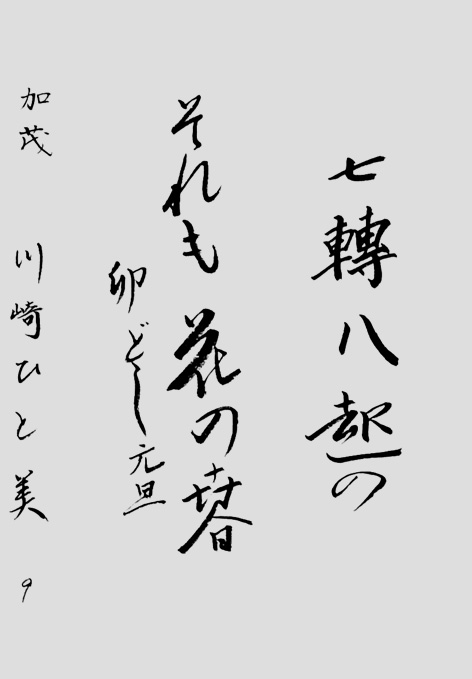 七轉八起の
それも花の春
卯どし元旦
加茂 川崎ひと美 9